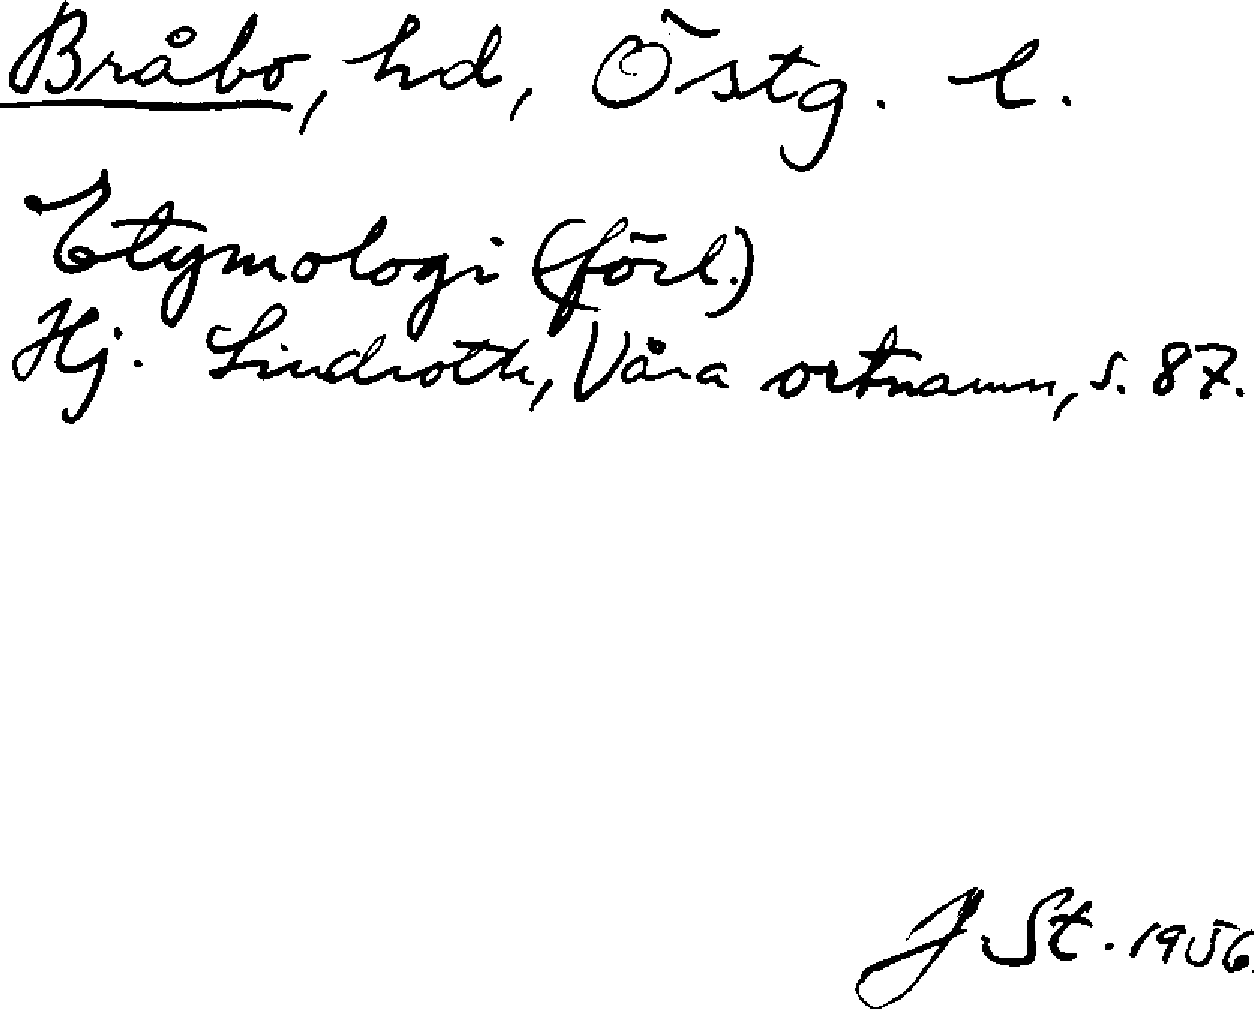 Bråbo, hd, Östg. l.
Etymologi (förl.)
Hj. Lindroth, Våra ortnamn, s. 87.
J St. 1956.